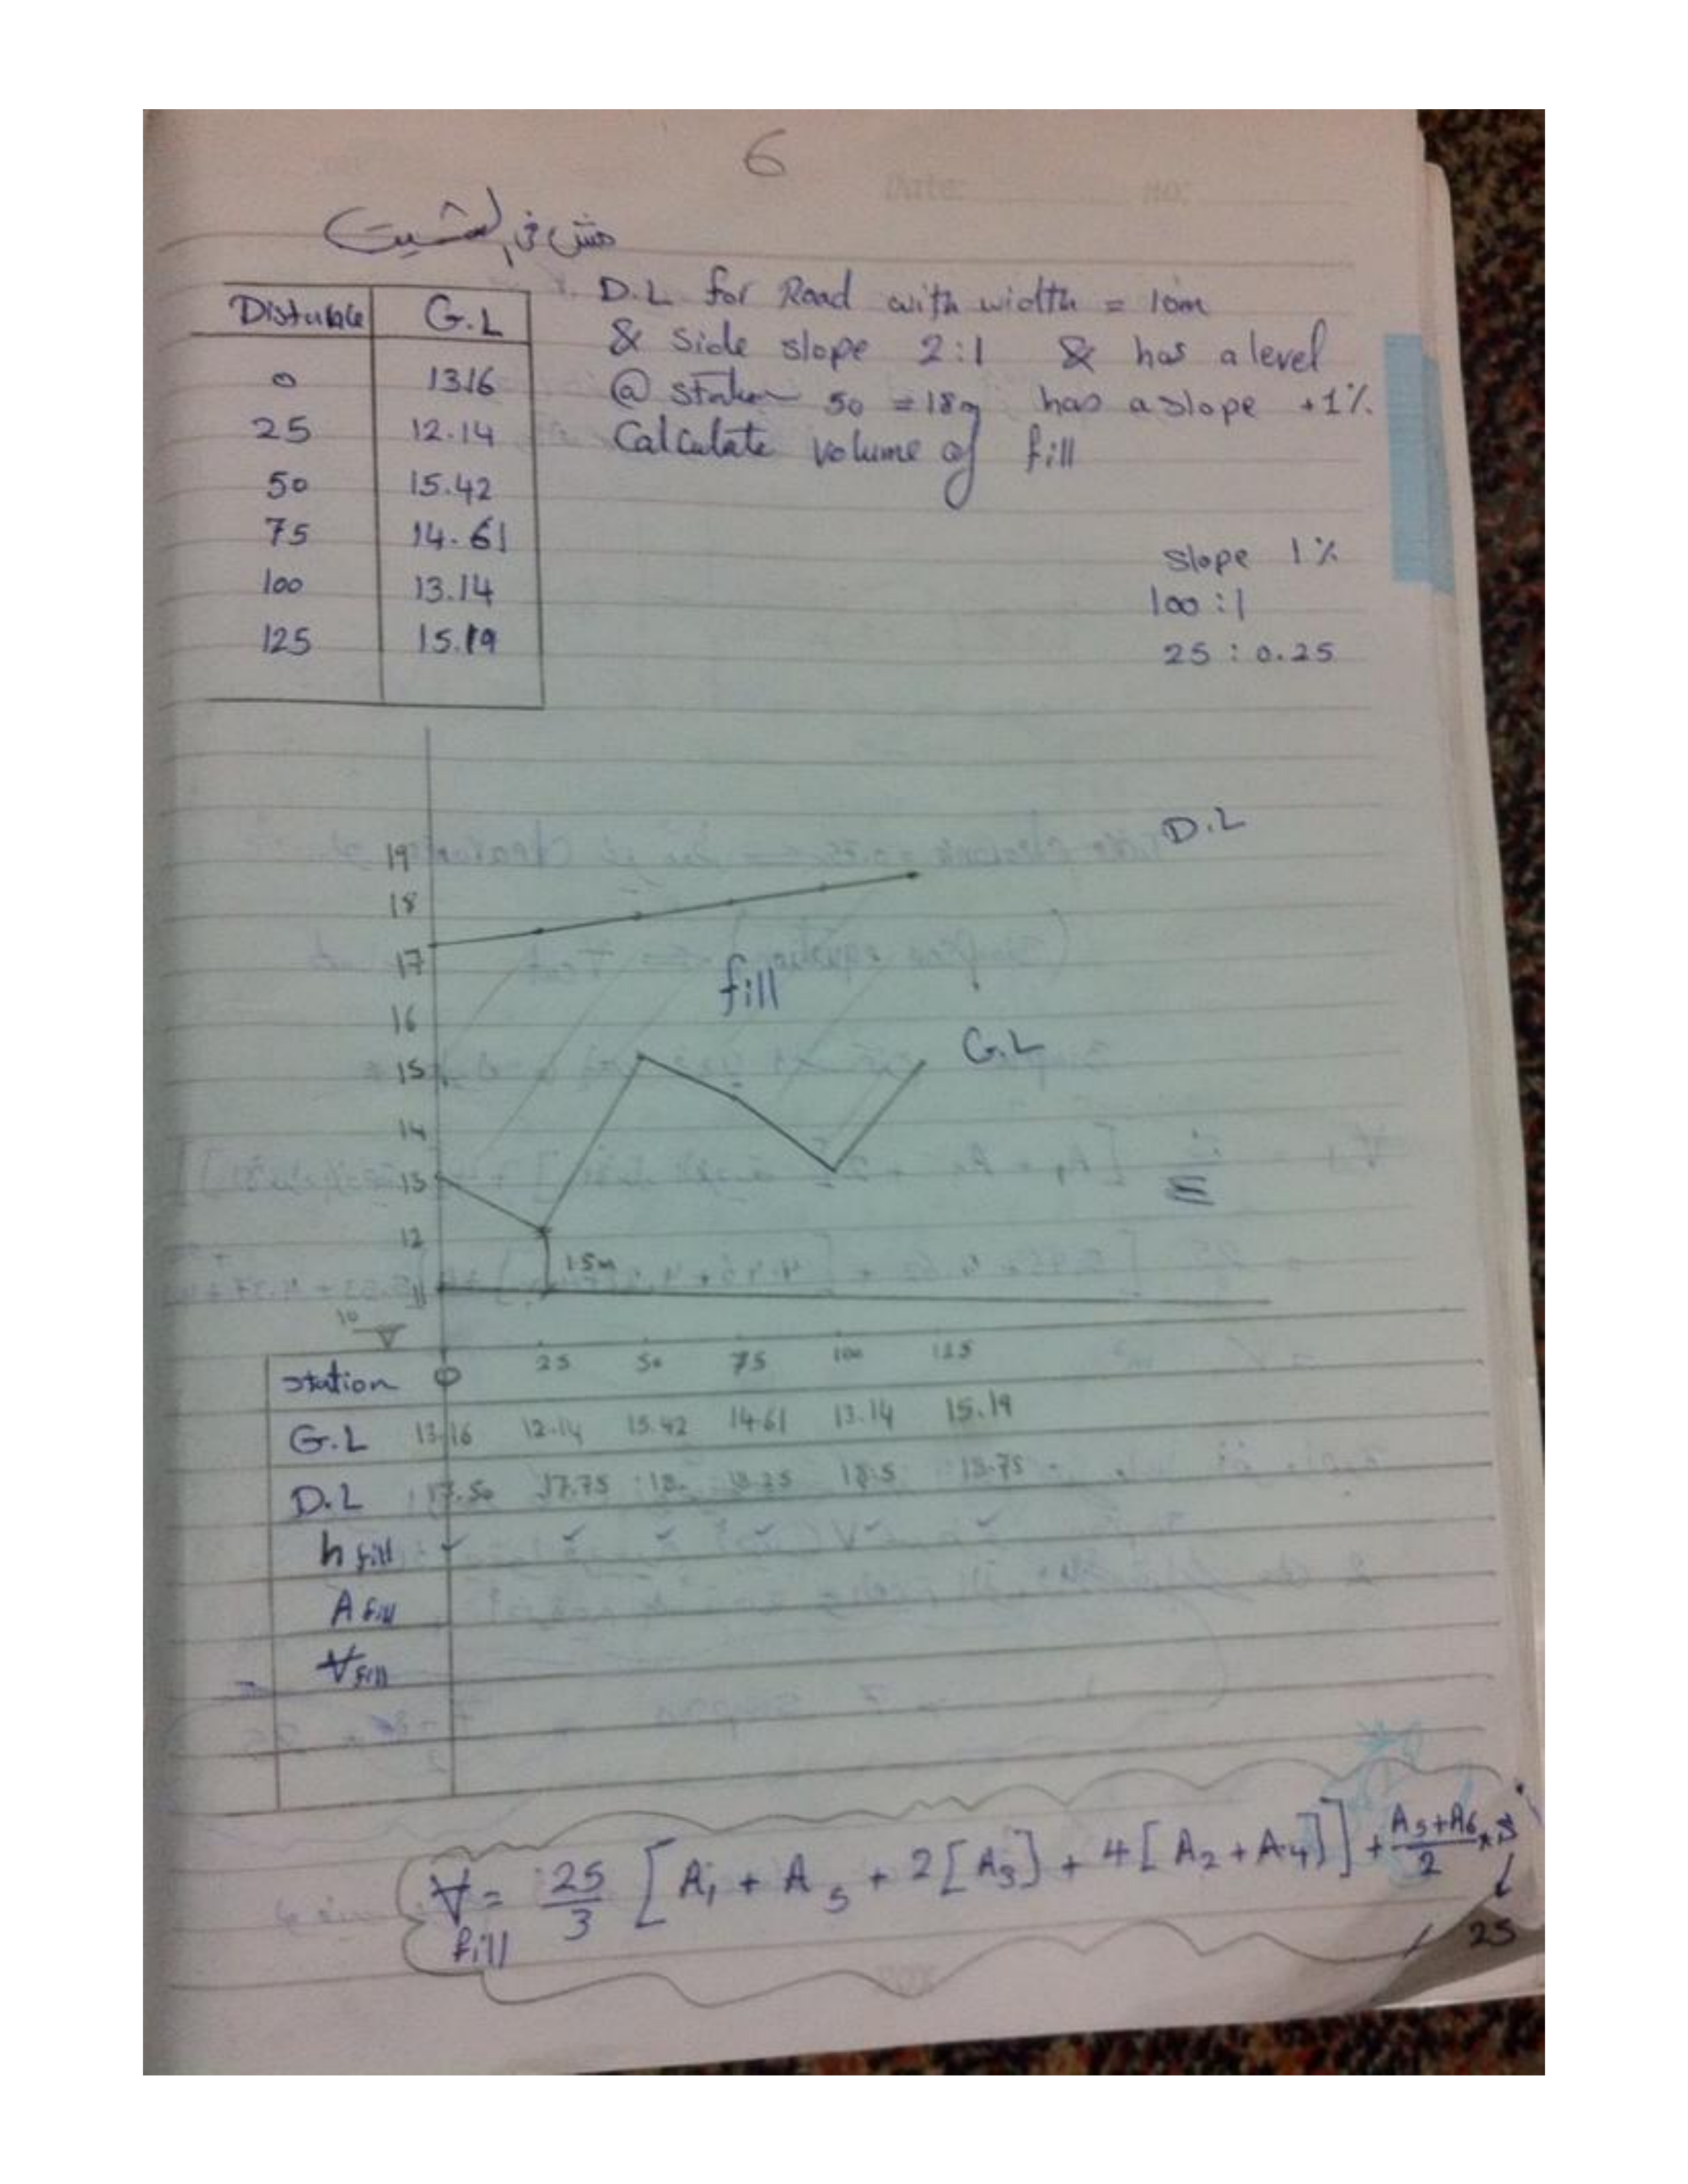 6
Date: No:
مش في الشيت
Distance G.L
0 13.16
25 12.14
50 15.42
75 14.61
100 13.14
125 15.19
D.L for Road with width = 10m
& side slope 2:1 & has a level
@ station 50 = 18m has a slope +1%
Calculate volume of fill
slope 1%
100 : 1
25 : 0.25
D.L
19
18
17
16
15
14
13
12
11
10
fill
G.L
1.5m
station 0 25 50 75 100 125
G.L 13.16 12.14 15.42 14.61 13.14 15.19
D.L 17.50 17.75 18. 18.25 18.5 18.75
h fill ✓ ✓ ✓ ✓ ✓ ✓
A fill
V fill
V fill = 25/3 [A1 + A5 + 2[A3] + 4[A2 + A4]] + (A5+A6)/2 * S
25